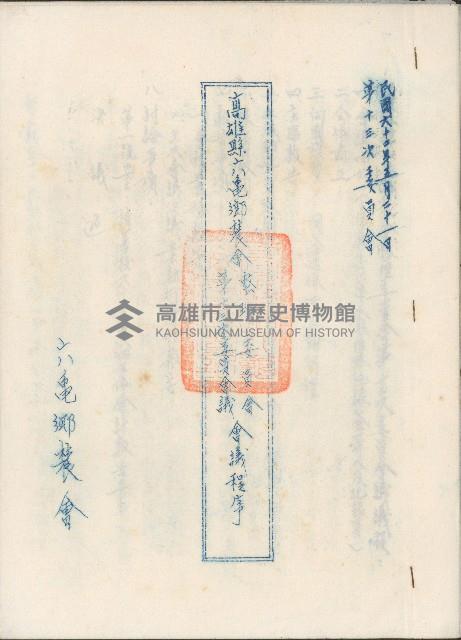 民國六十四年五月二十一日
第十三次委員會
高雄縣六龜鄉農會
委員會
委員會議
會議程序
六龜鄉農會
高雄市立歷史博物館
KAOHSIUNG MUSEUM OF HISTORY